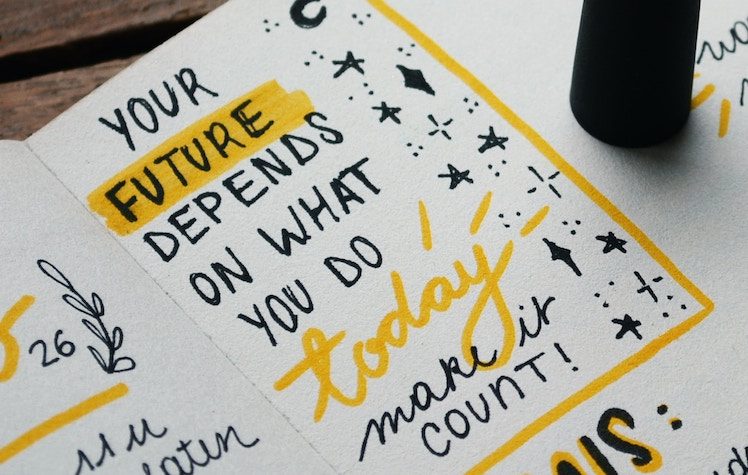 YOUR
FUTURE
DEPENDS
ON WHAT
YOU DO
today
make it
COUNT!
26